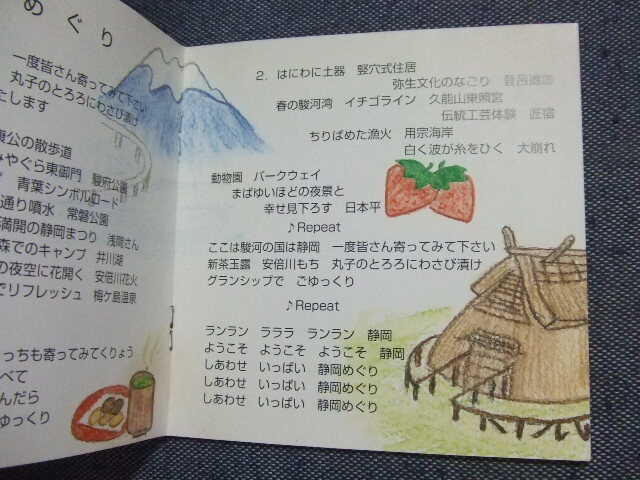 めぐり
一度皆さん寄ってみて下さい
丸子のとろろにわさび漬け
たします
東公の散歩道
みやぐら東御門　駿府公園
青葉シンボルロード
通り噴水　常磐公園
満開の静岡まつり　浅間さん
森でのキャンプ　井川湖
の夜空に花開く　安倍川花火
でリフレッシュ　梅ケ島温泉
っちも寄ってみてくりょう
べて
んだら
ごゆっくり
2．はにわに土器　竪穴式住居
弥生文化のなごり　登呂遺跡
春の駿河湾　イチゴライン　久能山東照宮
伝統工芸体験　匠宿
ちりばめた漁火　用宗海岸
白く波が糸をひく　大崩れ
動物園　パークウェイ
まばゆいほどの夜景と
幸せ見下ろす　日本平
♪Repeat
ここは駿河の国は静岡　一度皆さん寄ってみて下さい
新茶玉露　安倍川もち　丸子のとろろにわさび漬け
グランシップで　ごゆっくり
♪Repeat
ランラン　ラララ　ランラン　静岡
ようこそ　ようこそ　ようこそ　静岡
しあわせ　いっぱい　静岡めぐり
しあわせ　いっぱい　静岡めぐり
しあわせ　いっぱい　静岡めぐり